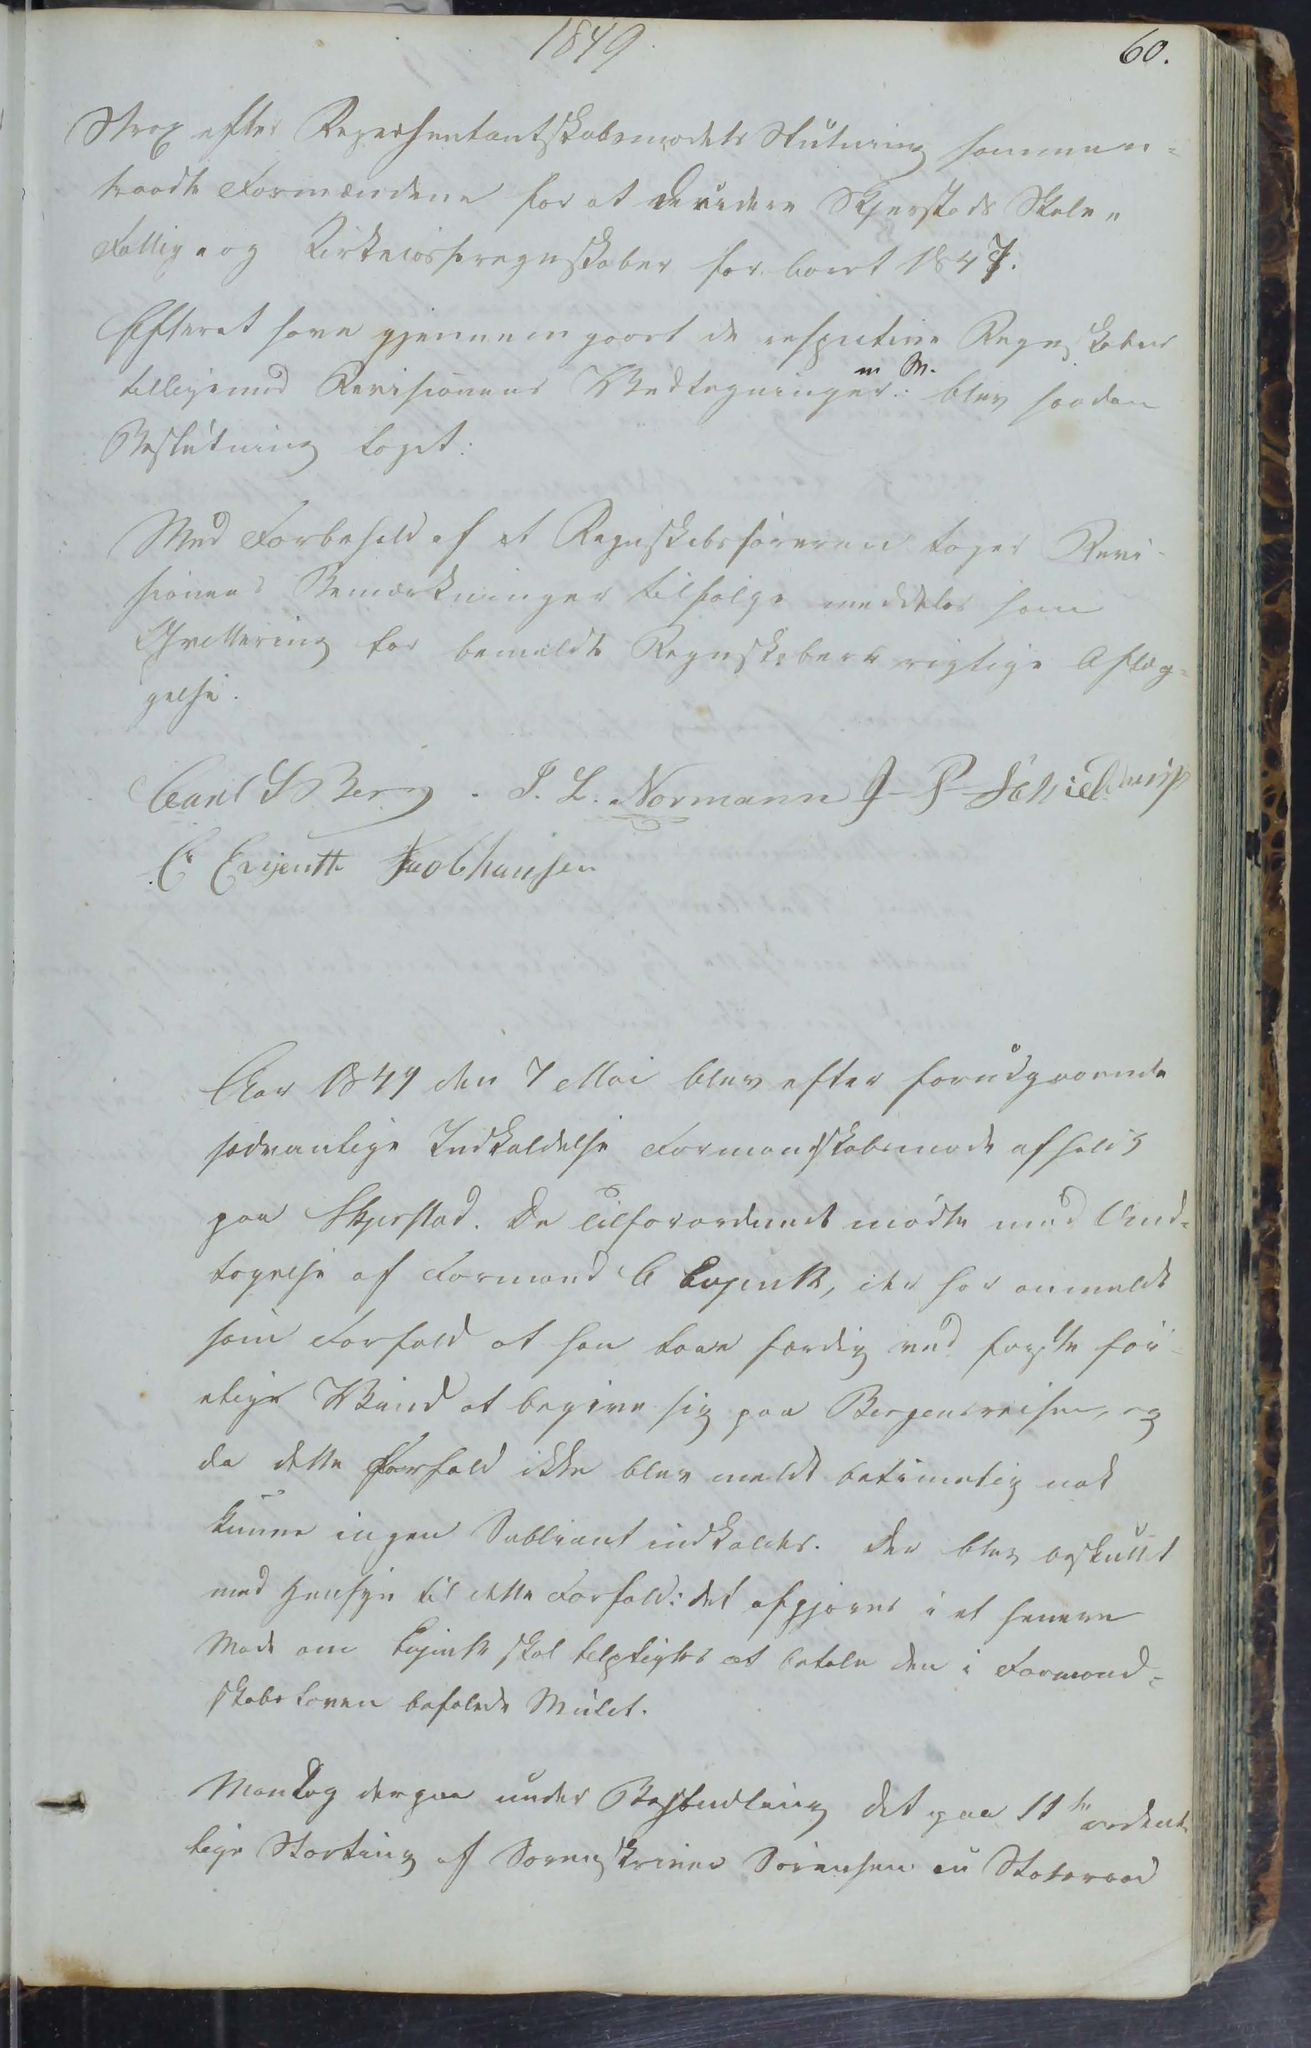 1849
60.
Strax efter Repræsentantskabsmødets Slutning sammen-
traadte Formændene for at decidere Skjerstads Skole-
Fattig- og Kirkecasseregnskaber for Aaret 1847.
Efterat have gjennemgaaet de respective Regnskaber
m M.
tilligemed Revisionens Vedtegninger: blev saadan
Beslutning taget:
Med Forbehold af at Regnskabsføreren tager Revi-
sionens Bemærkninger tilfølge meddeles ham
Qvittering for bemeldte Regnskabers rigtige Aflæg-
gelse.
Carl S Berg. J. L. Normann J P
C Evjenth Jacob hansen
Aar 1849 den 7 Mai blev efter forudgaaende
sædvanlige Indkaldelse Formandskabsmøde afholdt
paa Skjerstad. De Tilforordnede mødte med Und-
tagelse af Formand C Evjenth, der har anmeldt
som Forfald at han laae færdig ved første før-
elige Vind at begive sig paa Bergensreisen, og
da dette Forfald ikke blev meldt betimelig nok
kunne ingen Substitut indkaldes. Der blev besluttet
med Hensyn til dette Forfald: det afgjøres i et senere
Møde om Evjenth skal tilpligtes at betale den i Formand-
skabsloven befalede Mulct.
Man tog derpaa under Behandling det paa 11te ordent-
lige Storting af Sorenskriver Sørensen nu Statsraad